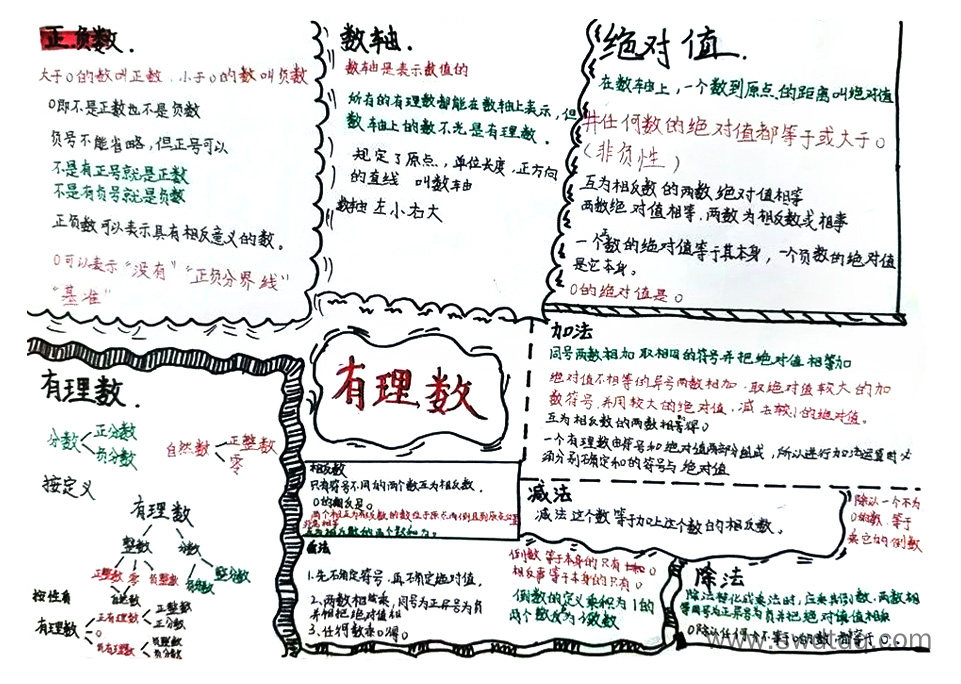 正.负数.
大于0的数叫正数.小于0的数叫负数
0即不是正数也不是负数
负号不能省略,但正号可以
不是有正号就是正数
不是有负号就是负数
正负数可以表示具有相反意义的数。
0可以表示"没有""正负分界线"
"基准"
数轴.
数轴是表示数值的
所有的有理数都能在数轴上表示,但
数轴上的数不光是有理数.
规定了原点,单位长度,正方向
的直线 叫数轴
数轴左小右大
绝对值.
在数轴上,一个数到原点的距离叫绝对值
任何数的绝对值都等于或大于0
(非负性)
互为相反数的两数绝对值相等
两数绝对值相等,两数为相反数或相等
一个数的绝对值等于其本身,一个负数的绝对值
是它本身。
0的绝对值是0
有理数.
分数 正分数
负分数
自然数 正整数
零
按定义
有理数
整数 分数
正整数 零 负整数
自然数
按性质
有理数
正有理数 正整数
正分数
0
负有理数 负整数
负分数
有理数
相反数
只有符号不同的两个数互为相反数.
0的相反是0
加法
同号两数相加 取相同的符号并把绝对值相等加
绝对值不相等的异号两数相加.取绝对值较大的加
数符号.并用较大的绝对值,减去较小的绝对值。
互为相反数的两数相等得0
一个有理数由符号和绝对值两部分组成,所以进行加法运算时必
须分别确定和的符号与绝对值
减法
减法这个数等于加上这个数的相反数.
除以一个不为
0的数 等于
乘它的倒数
1.先确定符号,再确定绝对值,
2、两数相乘,同号为正异号为负
并相把绝对值相
3、任何数乘0得0
倒数等于本身的只有 0
相反事等于本身的只有0
倒数的定义乘积为1的
两个数
除法
除法转化成乘法时,应乘其倒数.两数相
www.swtdq.com